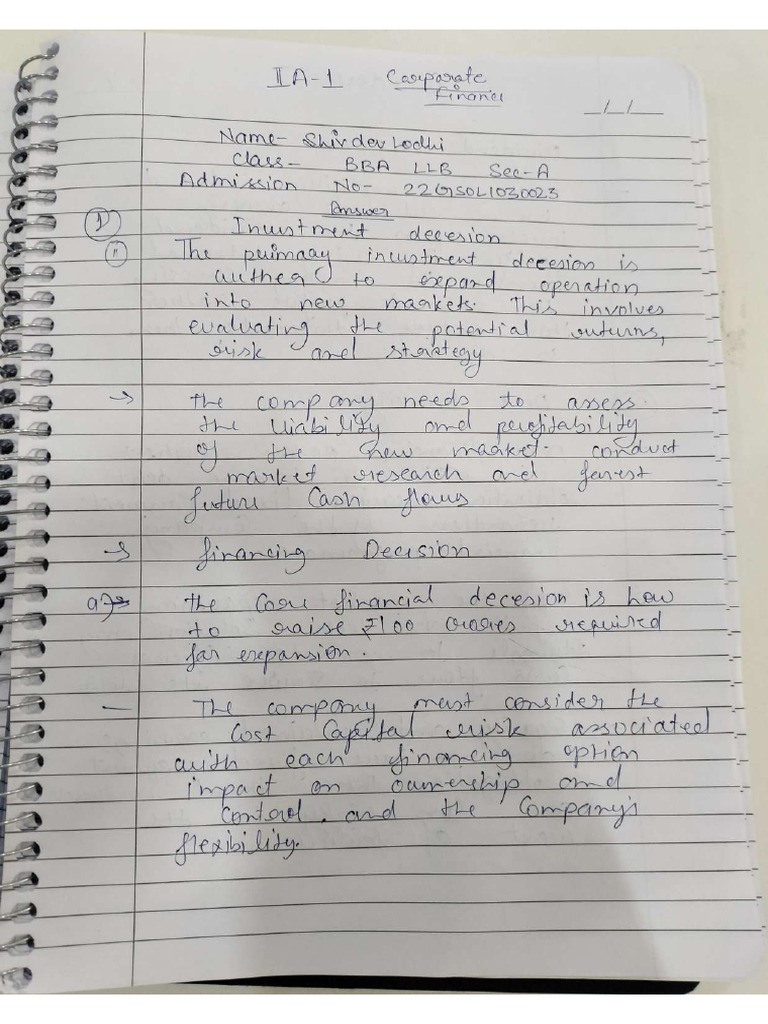 IA-1 Corporate
Finance
_/_/_
Name- Shivdev Lodhi
Class- BBA LLB Sec-A
Admission No- 22GSOL1030023
Answer
① Investment decesion
⑪ The primary investment decesion is
to expand operation
into new markets. This involves
evaluating the potential returns,
risk and strategy
→ The company needs to assess
the viability and profitability
of the new market. conduct
market research and
future Cash flows
→ financing Decision
a) The Core financial decesion is how
to raise ₹100 crores required
for expansion.
— The company must consider the
Cost Capital risk associated
with each financing option
impact on ownership and
Control. and the Company's
flexibility.